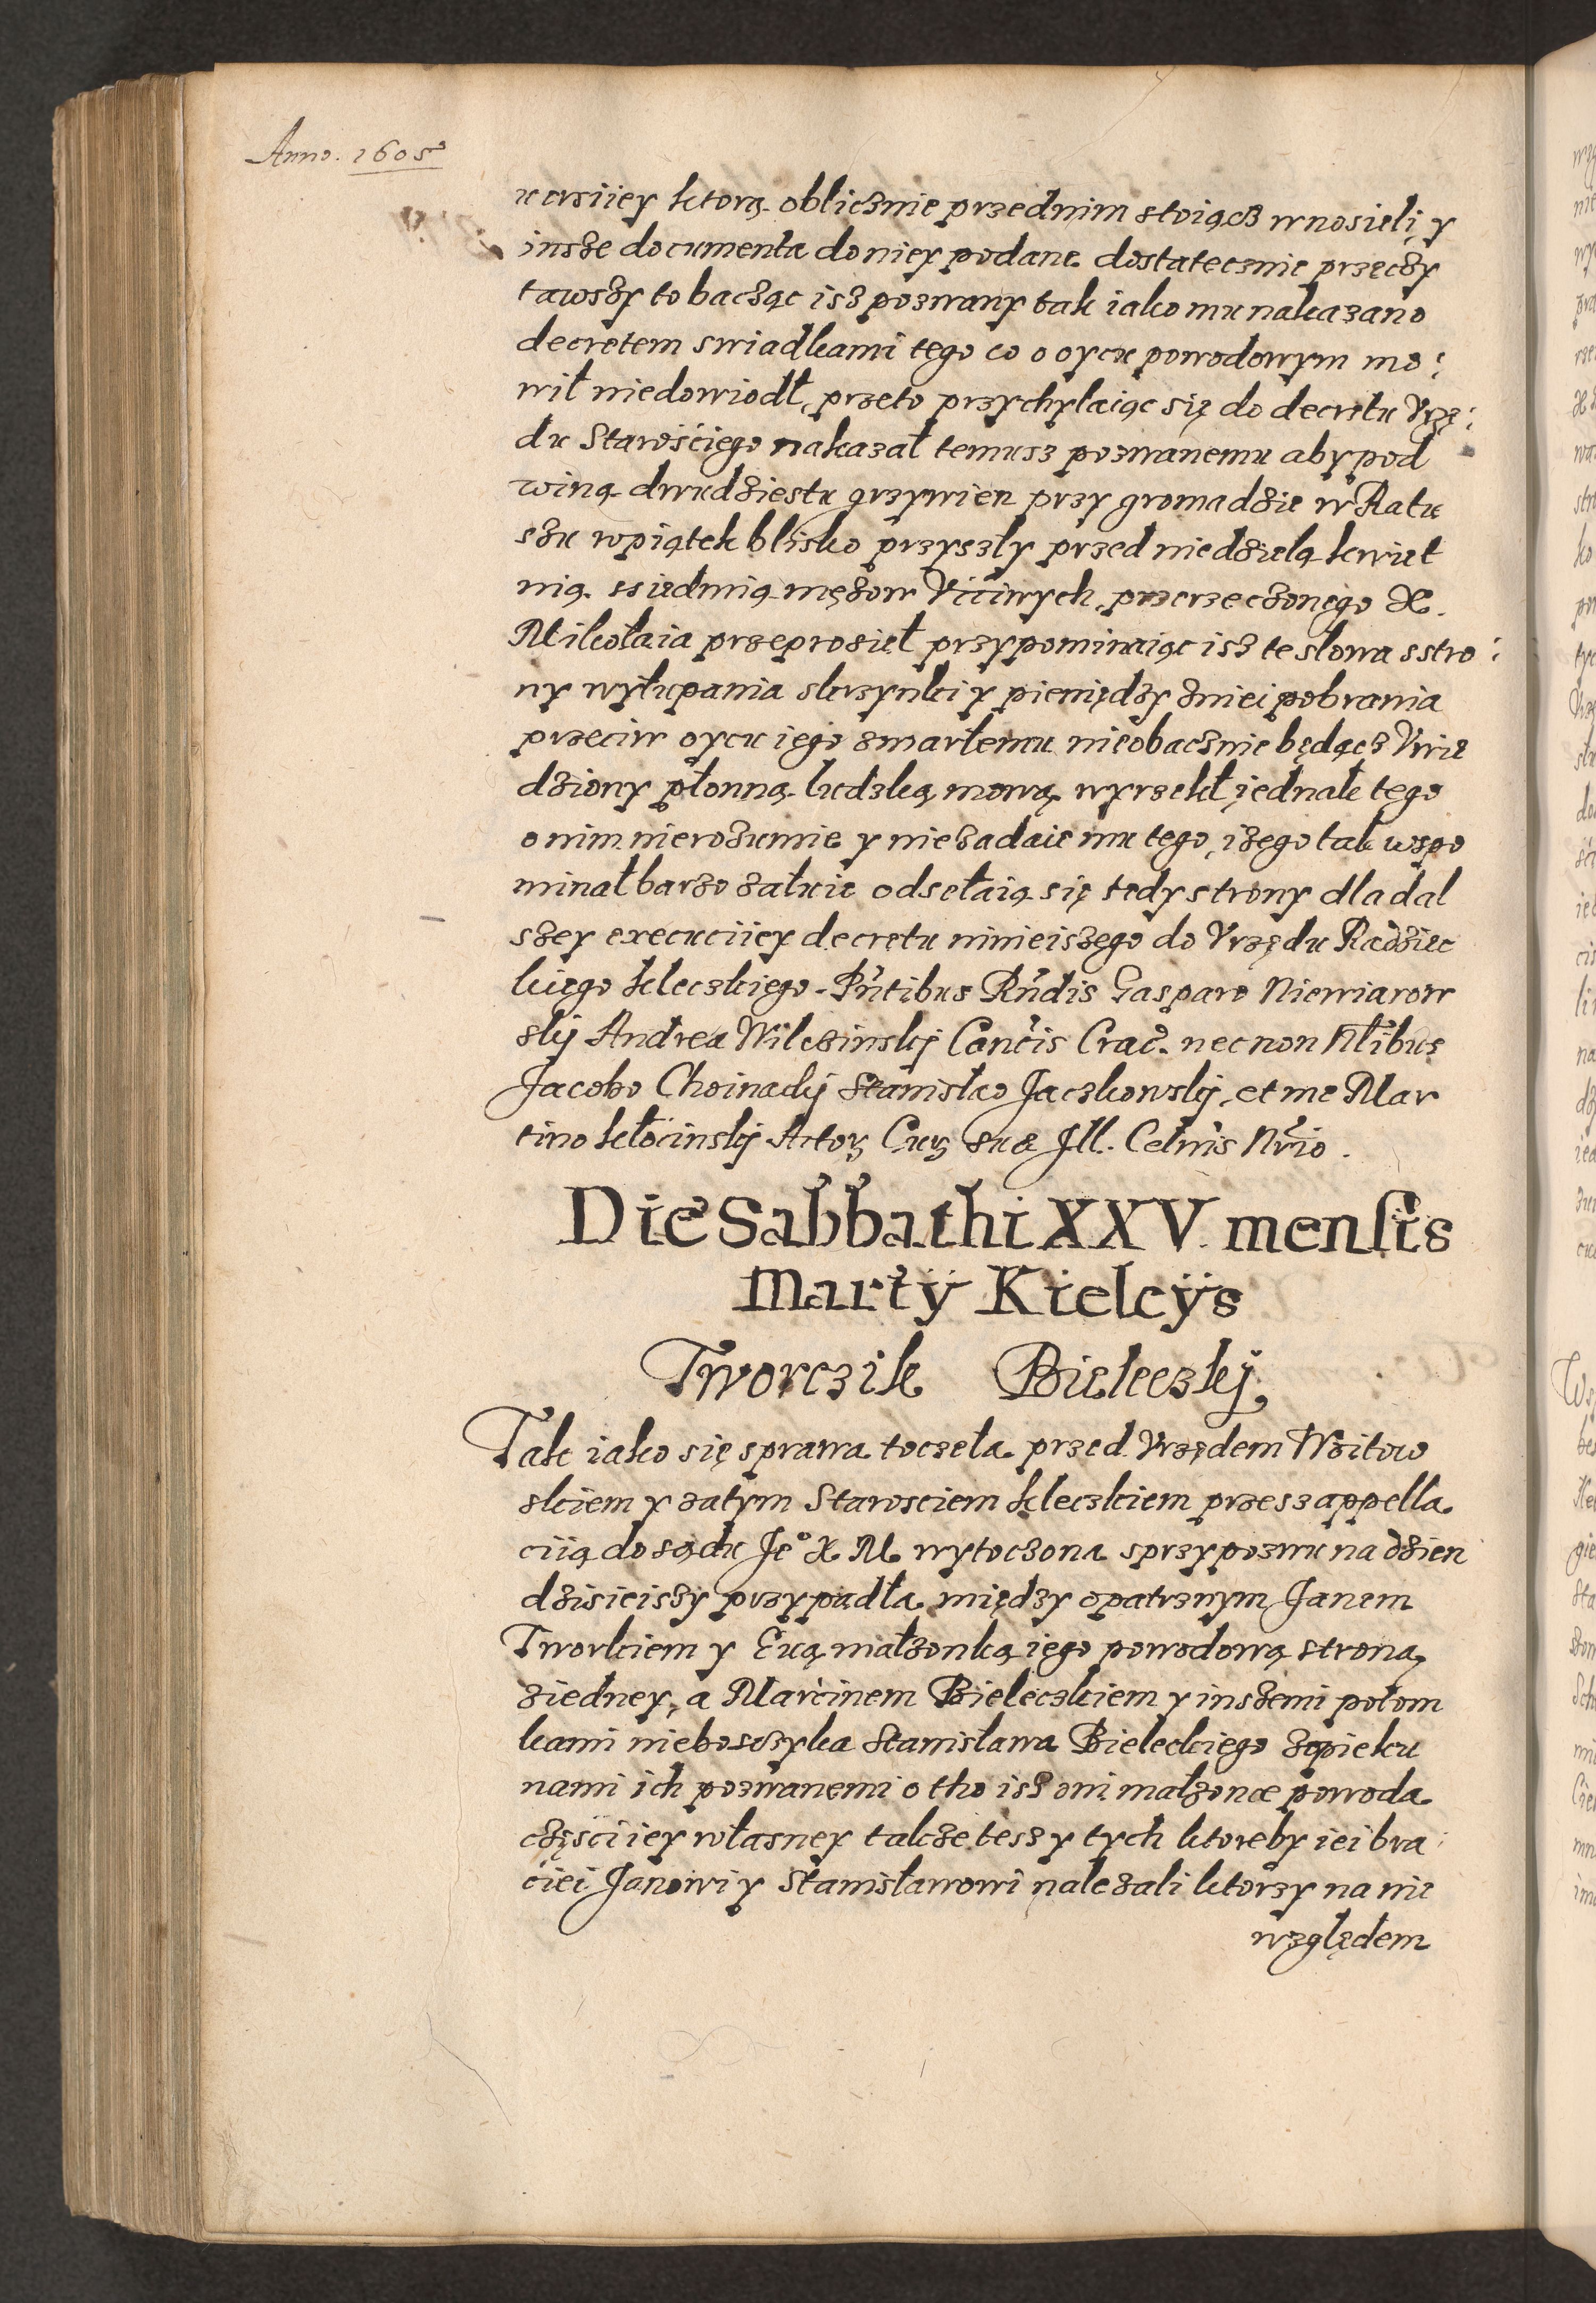 Anno. 1605
ucriiey ktorą obliczniе przednim stoiącz wnosieli, y
insze documenta doniey podane dostatecznie przeczy
tawszy to bacząc isz pozwany tak iako mu nakazano
decretem swiadkami tego co o oycu powodowym mo:
wił niedowiodł, przeto przychylaiąc się do decretu Vrzę:
du Starościego nakazał temusz pozwanemu aby pod
winą dwudziestu grzywien przy gromadzie w Ratu
szu wpiątek blisko przyszły przed niedzielą kwiet
nią ssiedmią mężow Vćciwych przerzeczonego X.
Mikołaia przeprosieł przypominaiąc isz te słowa sstro:
ny wyłupania skrzynki y pieniędzy zniei pobrania
przeciw oycu iego zmarłemu nieobacznie będącz Vwie
dziony płonną ludzką mową wyrzekł iednak tego
onim nierozumie y niezadaie mu tego, iżego tak wspo
minał barzo załuie odsełaią się tedy strony dla dal
szey execuciiey decretu ninieiszego do Vrzędu Radziec
kiego kleczkiego. Pn̄tibus Rn̄dis Gasparo Niewiarow
skÿ Andrea Wilczinskÿ Can̄cis Crac̄. necnon Nl̄ibus
Jacobo Choinackÿ Stanisłao Jaczkowskÿ, et me Mar
tino kłocinskÿ Actoꝝ Cuꝝ suæ Jll. Celn̄is Nr̄io.
Die Sabbathi XXV mensis
Martÿ Kielcÿs
Tworczik Bieleczkÿ
Tak iako się sprawa toczeła przed Vrzędem Woitow
skiem y zatym Starosciem kleczkiem przesz appella
ciią do sądu Jeº X M wytoczona sprzypozwu na dzien
dzisieiszy przypadła między opatrznym Janem
Tworkiem y Ewą małzonką iego powodową stroną
ziedney, a Marcinem Bieleczkiem y inszemi potom
kami nieboszczyka Stanisława Bieleckiego zopieku
nami ich pozwanemi o tho isz oni małzonce powoda
częsci iey własney takze tesz y tych ktoreby iei bra
ciei Janowi y Stanisławowi nalezali ktorzy na nie
względem